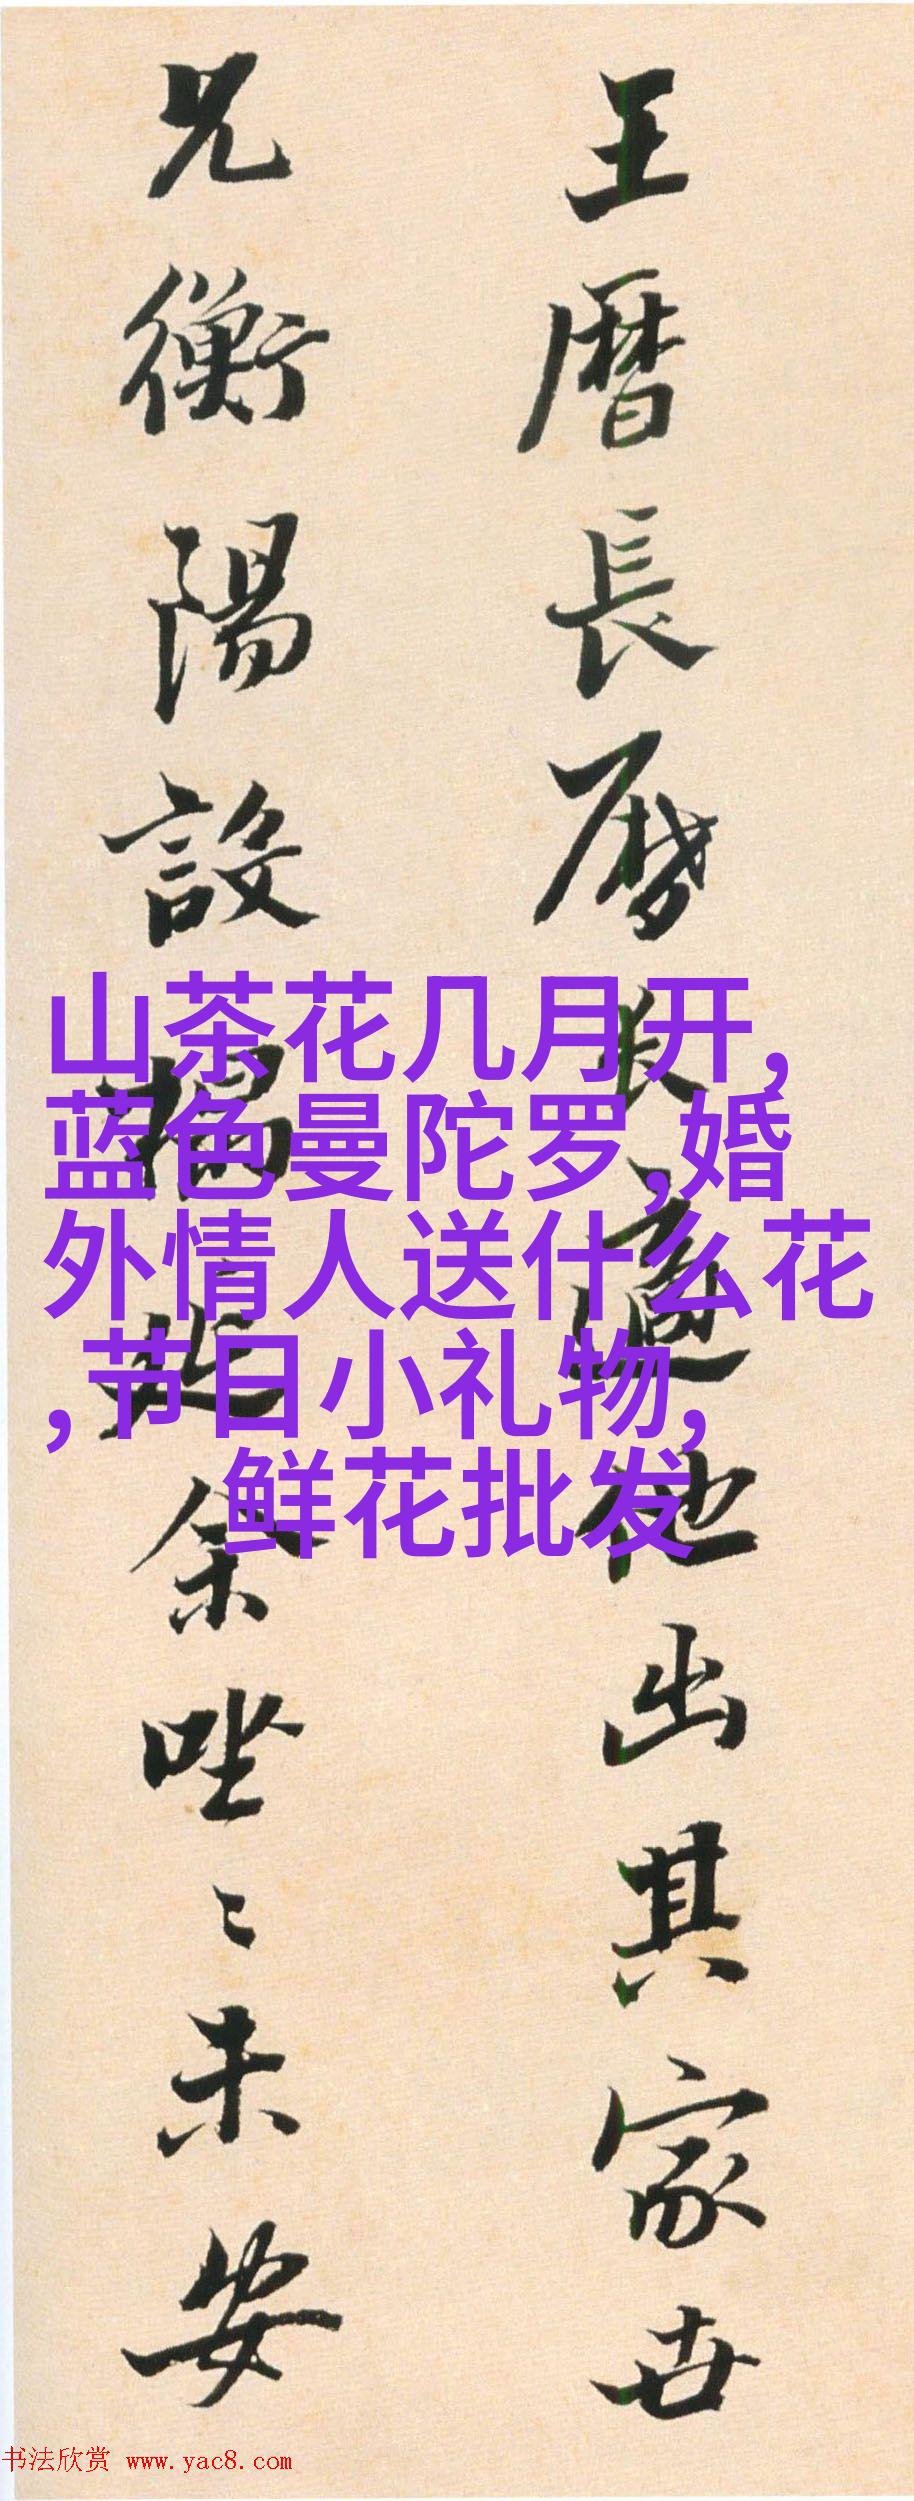 王曆長曆長適他出其家世
兄衡陽設榻延余坐〻未安
山茶花几月开,
蓝色曼陀罗,婚
外情人送什么花
,节日小礼物,
鲜花批发
书法欣赏 www.yac8.com